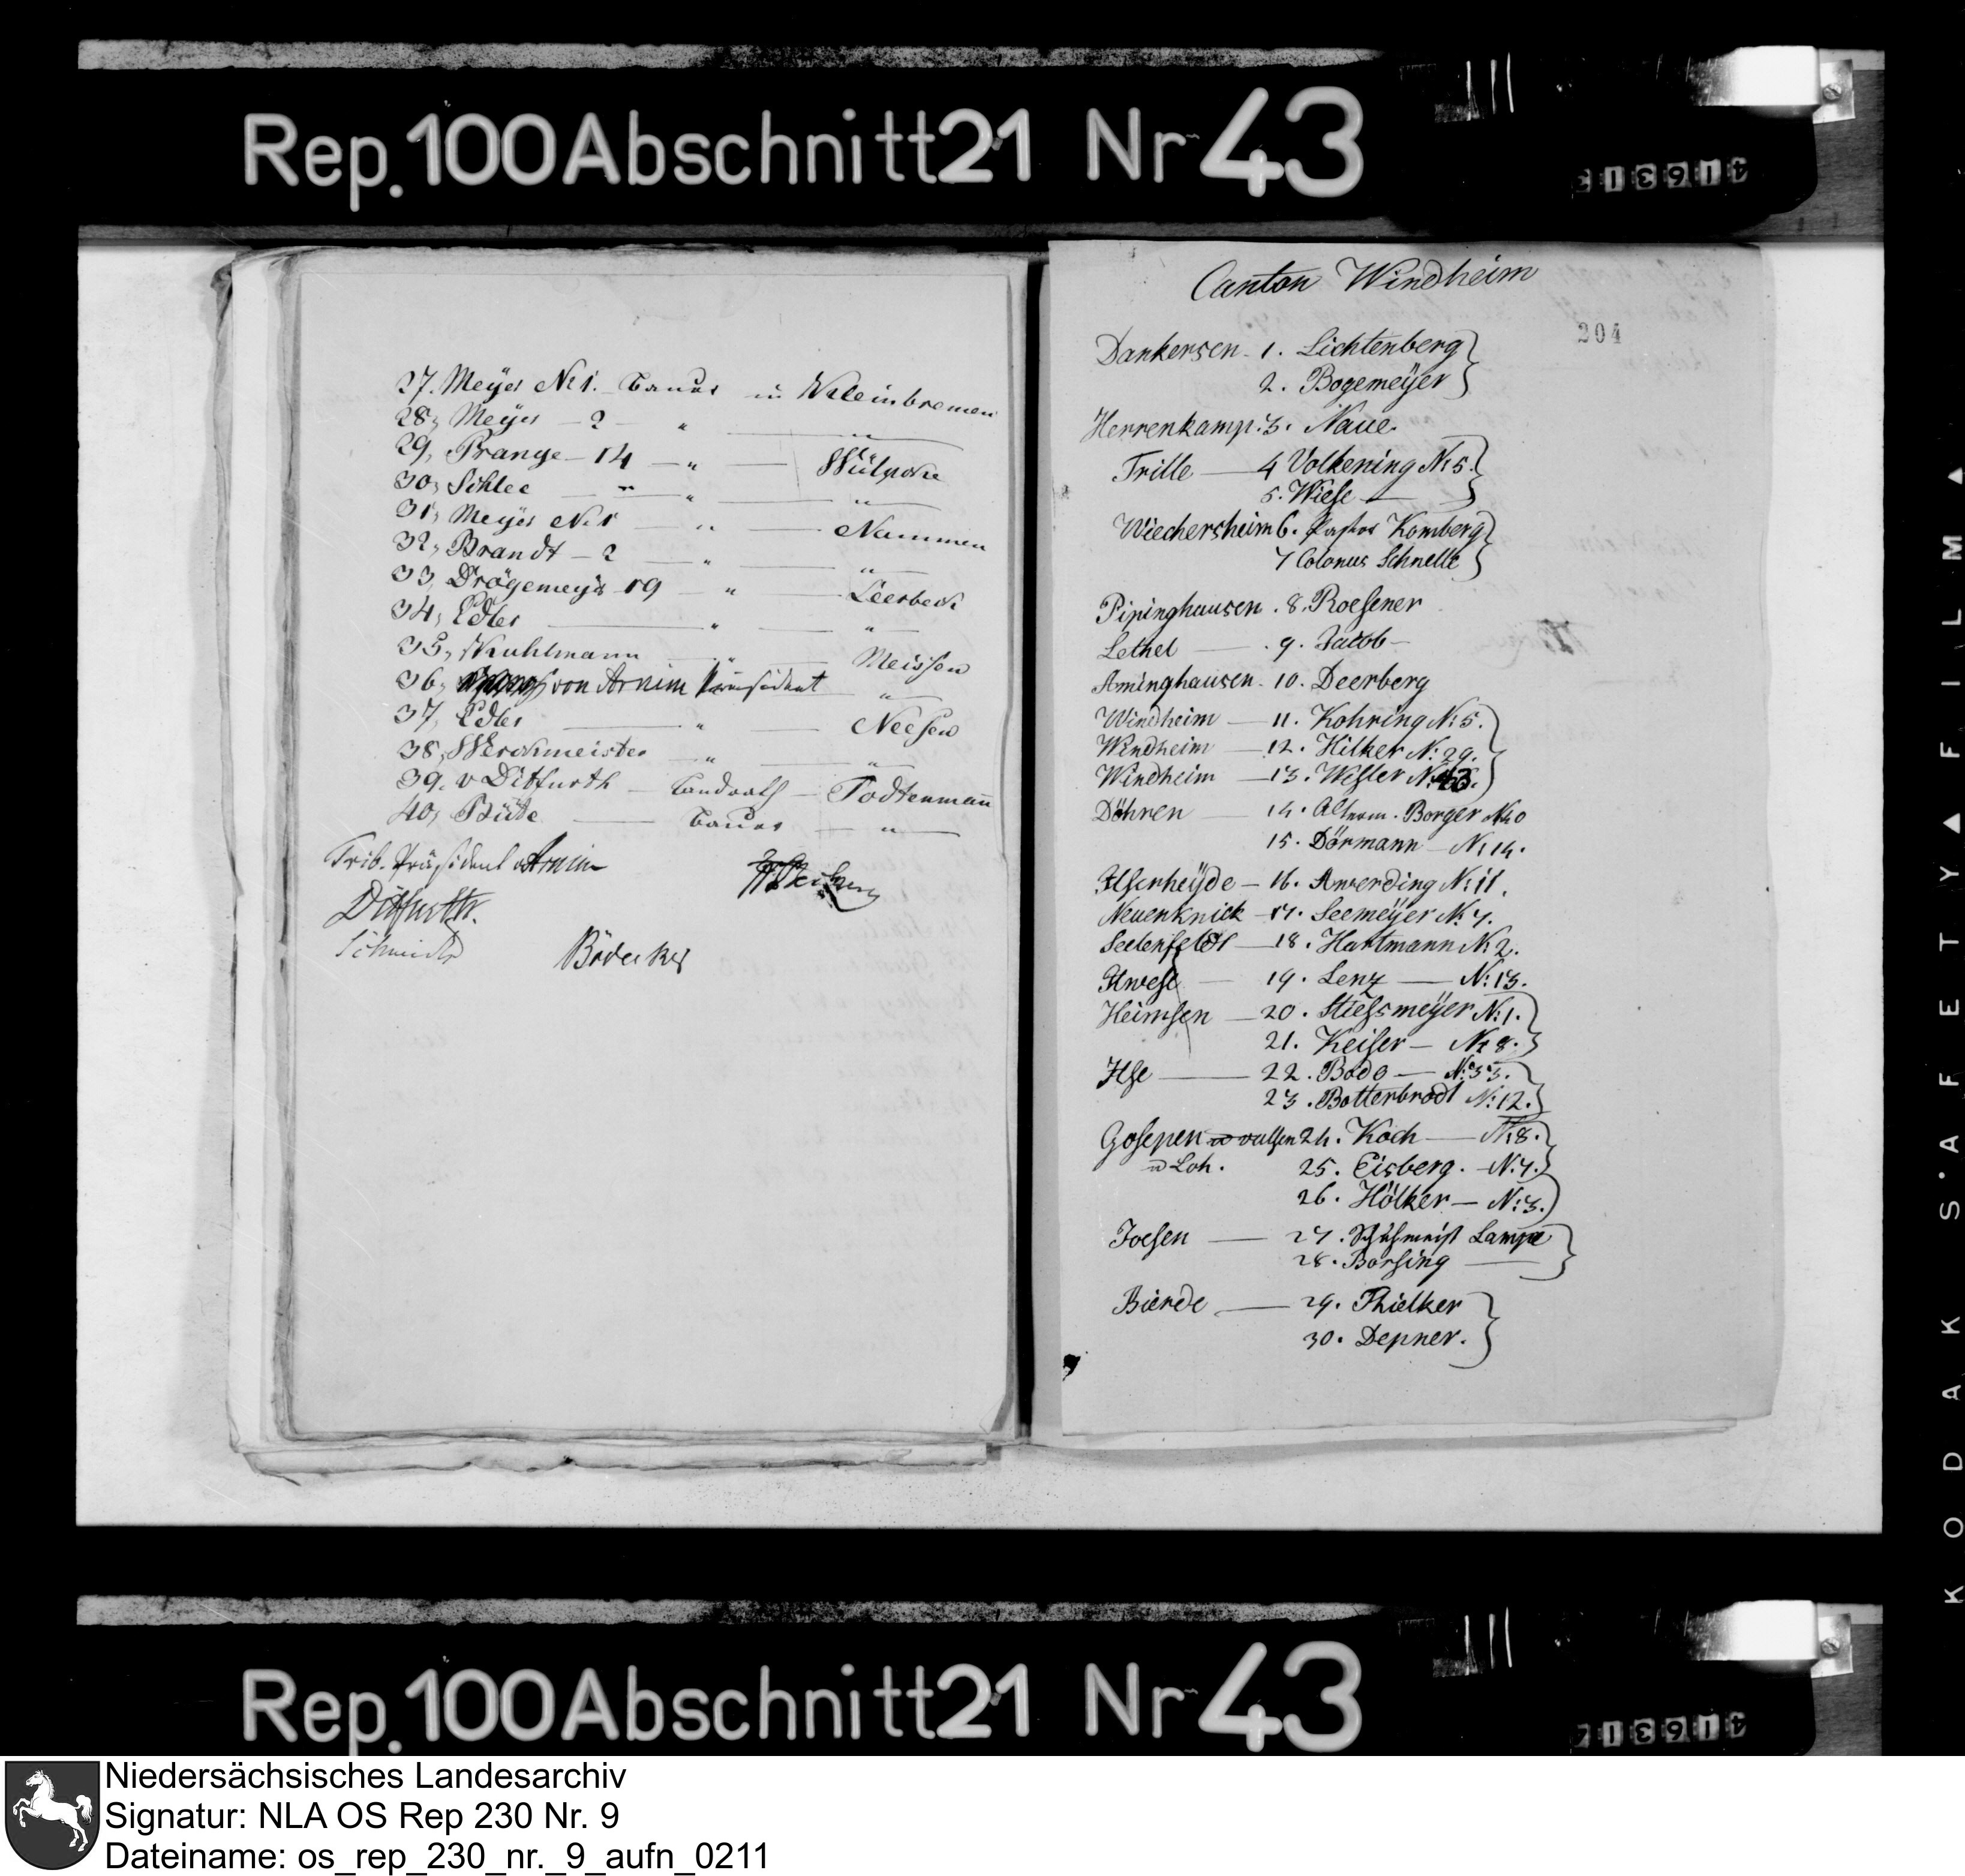 Rep. 100 Abschnitt 21 Nr 43
27. Meyer No 1. Bauer in Kleinbremen
28, Meyer – 2 – " — "
29, Prange – 14 – " — Wülpcke
30, Schlee — " — " — "
31, Meyer No 1 — " — Nammen
32, Brandt – 2 — " — "
33, Drögemeyer 19 — " — Leerbeck
34, Edler — " — "
35, Kuhlmann — " — Meissen
36, von Arnim Präsident "
37, Edler — " — Neesen
38, Werckmeister — " — "
39. v Ditfurth — Landrath — Todtenmann
40, Büte — Bauer — "
Trib. Präsident v Arnim
Ditfurth.
Schmidts Bödecker
Canton Windheim
204
Dankersen – 1. Lichtenberg
2. Bogemeÿer
Herrenkamp. 3. Naue.
Frille — 4 Volkening No 5.
5. Wiese —
Wiechersheim 6. Pastor Komberg
7 Colonus Schnelle
Pipinghausen . 8. Roesener
Lethel — . 9. Jacob –
Aminghausen – 10. Deerberg
Windheim — 11. Kohring N: 5.
Windheim — 12. Hilker N: 29.
Windheim — 13. Wisler N: 43.
Döhren — 14. Borger No
15. Dörmann – N: 14.
Ilsenheÿde – 16. Anerding N: 11.
Neuenknick – 17. Seemeÿer N: 7.
Seelenfeldt – 18. Hartmann N: 2.
Ilwese — 19. Lenz — N: 13.
Heimsen — 20. Stiessmeÿer N: 1.
21. Keiser — N: 8.
Ilse — 22. Bado — N: 33.
23. Botterbrodt N: 12.
Gosepen 24. Koch — N: 8.
u Loh. 25. Eisberg. – N: 7.
26. Hölker – N: 3.
Joesen — 27. Lampe
28. Borsing —
Bierde — 29. Thielker
30. Depner.
Rep. 100 Abschnitt 21 Nr 43
KODAK SAFETY FILM
Niedersächsisches Landesarchiv
Signatur: NLA OS Rep 230 Nr. 9
Dateiname: os_rep_230_nr._9_aufn_0211